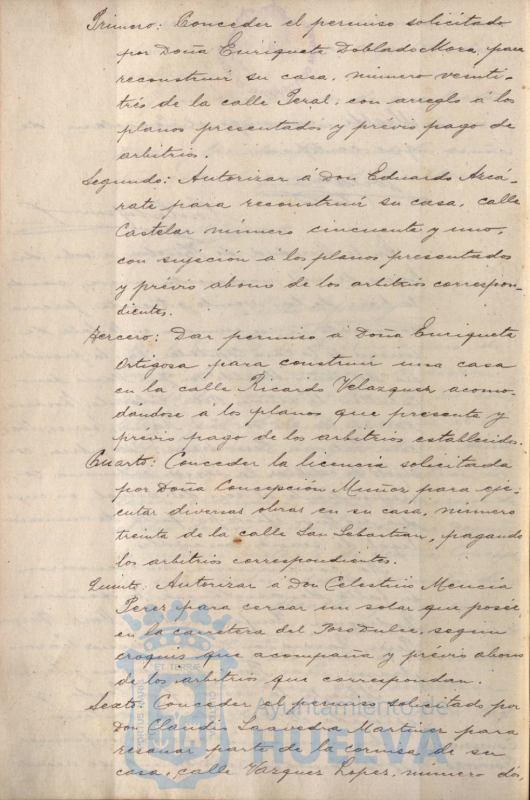 Primero: Conceder el permiso solicitado
por Doña Enriqueta Doblado Mora, para
reconstruir su casa, número veinti-
trés de la calle Peral, con arreglo á los
planos presentados y prévio pago de
arbitrios.
Segundo: Autorizar á Don Eduardo Azcá-
rate para reconstruir su casa, calle
Castelar número cincuenta y uno,
con sujeción á los planos presentados
y prévio abono de los arbitrios correspon-
dientes.
Tercero: Dar permiso á Doña Enriqueta
Ortigosa para construir una casa
en la calle Ricardo Velazquez, acomo-
dándose á los planos que presenta y
prévio pago de los arbitrios establecidos.
Cuarto: Conceder la licencia solicitada
por Doña Concepción Muñoz para eje-
cutar diversas obras en su casa, número
treinta de la calle San Sebastian, pagando
los arbitrios correspondientes.
Quinto: Autorizar á Don Celestino Mencía
Perez para cercar un solar que posée
en la carretera del Pozo Dulce, segun
croquis que acompaña y prévio abono
de los arbitrios que correspondan.
Sexto: Conceder el permiso solicitado por
Don Claudio Saavedra Martinez para
resanar parte de la cornisa de su
casa, calle Vazquez Lopez, número dos,
Ayuntamiento de
HUELVA